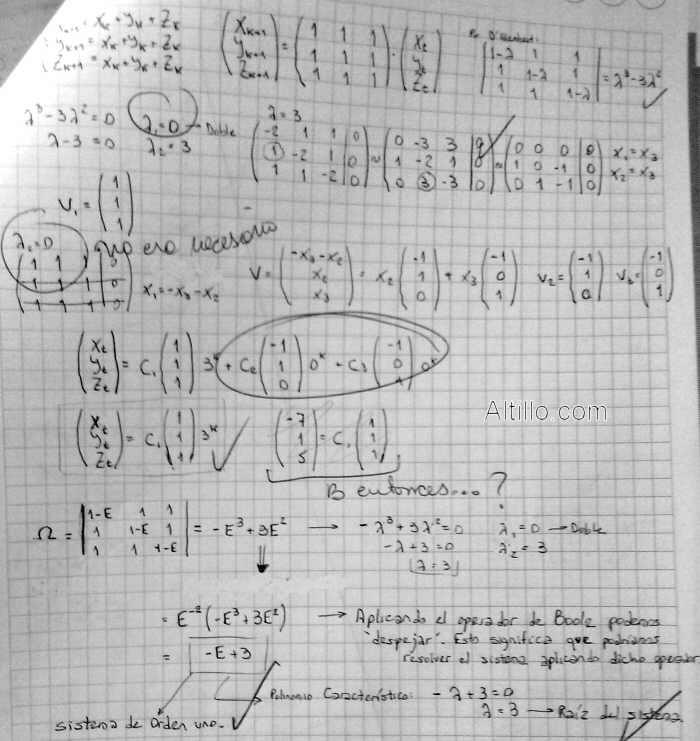 x_{k+1} = x_k + y_k + z_k
y_{k+1} = x_k + y_k + z_k
z_{k+1} = x_k + y_k + z_k
(x_{k+1} y_{k+1} z_{k+1}) = (1 1 1; 1 1 1; 1 1 1) · (x_t y_t z_t)
|1-λ 1 1; 1 1-λ 1; 1 1 1-λ| = λ³-3λ²
λ³-3λ²=0 λ₁=0 → Doble
λ-3=0 λ₂=3
λ=3
(-2 1 1 | 0; 1 -2 1 | 0; 1 1 -2 | 0) ~ (0 -3 3 | 0; 1 -2 1 | 0; 0 3 -3 | 0) ~ (0 0 0 | 0; 1 0 -1 | 0; 0 1 -1 | 0) x₁=x₃
x₂=x₃
V₁ = (1 1 1)
λ₁=0 no era necesario
(1 1 1 | 0; 1 1 1 | 0; 1 1 1 | 0) x₁=-x₃-x₂
V = (-x₃-x₂ x₂ x₃) = x₂ (-1 1 0) + x₃ (-1 0 1) V₂=(-1 1 0) V₃=(-1 0 1)
(x_t y_t z_t) = C₁ (1 1 1) 3^k + C₂ (-1 1 0) 0^k + C₃ (-1 0 1) 0^k
Altillo.com
(x_t y_t z_t) = C₁ (1 1 1) 3^k (-7 1 5) = C₁ (1 1 1)
B entonces...?
Ω = |1-E 1 1; 1 1-E 1; 1 1 1-E| = -E³+3E² → -λ³+3λ²=0 λ₁=0 → Doble
-λ+3=0 λ₂=3
λ=3
= E⁻²(-E³+3E²) → Aplicando el operador de Boole podemos
"despejar". Esto significa que podríamos
resolver el sistema aplicando dicho operador
= -E+3
Polinomio Característico: -λ+3=0
λ=3 → Raíz del sistema
sistema de Orden uno.